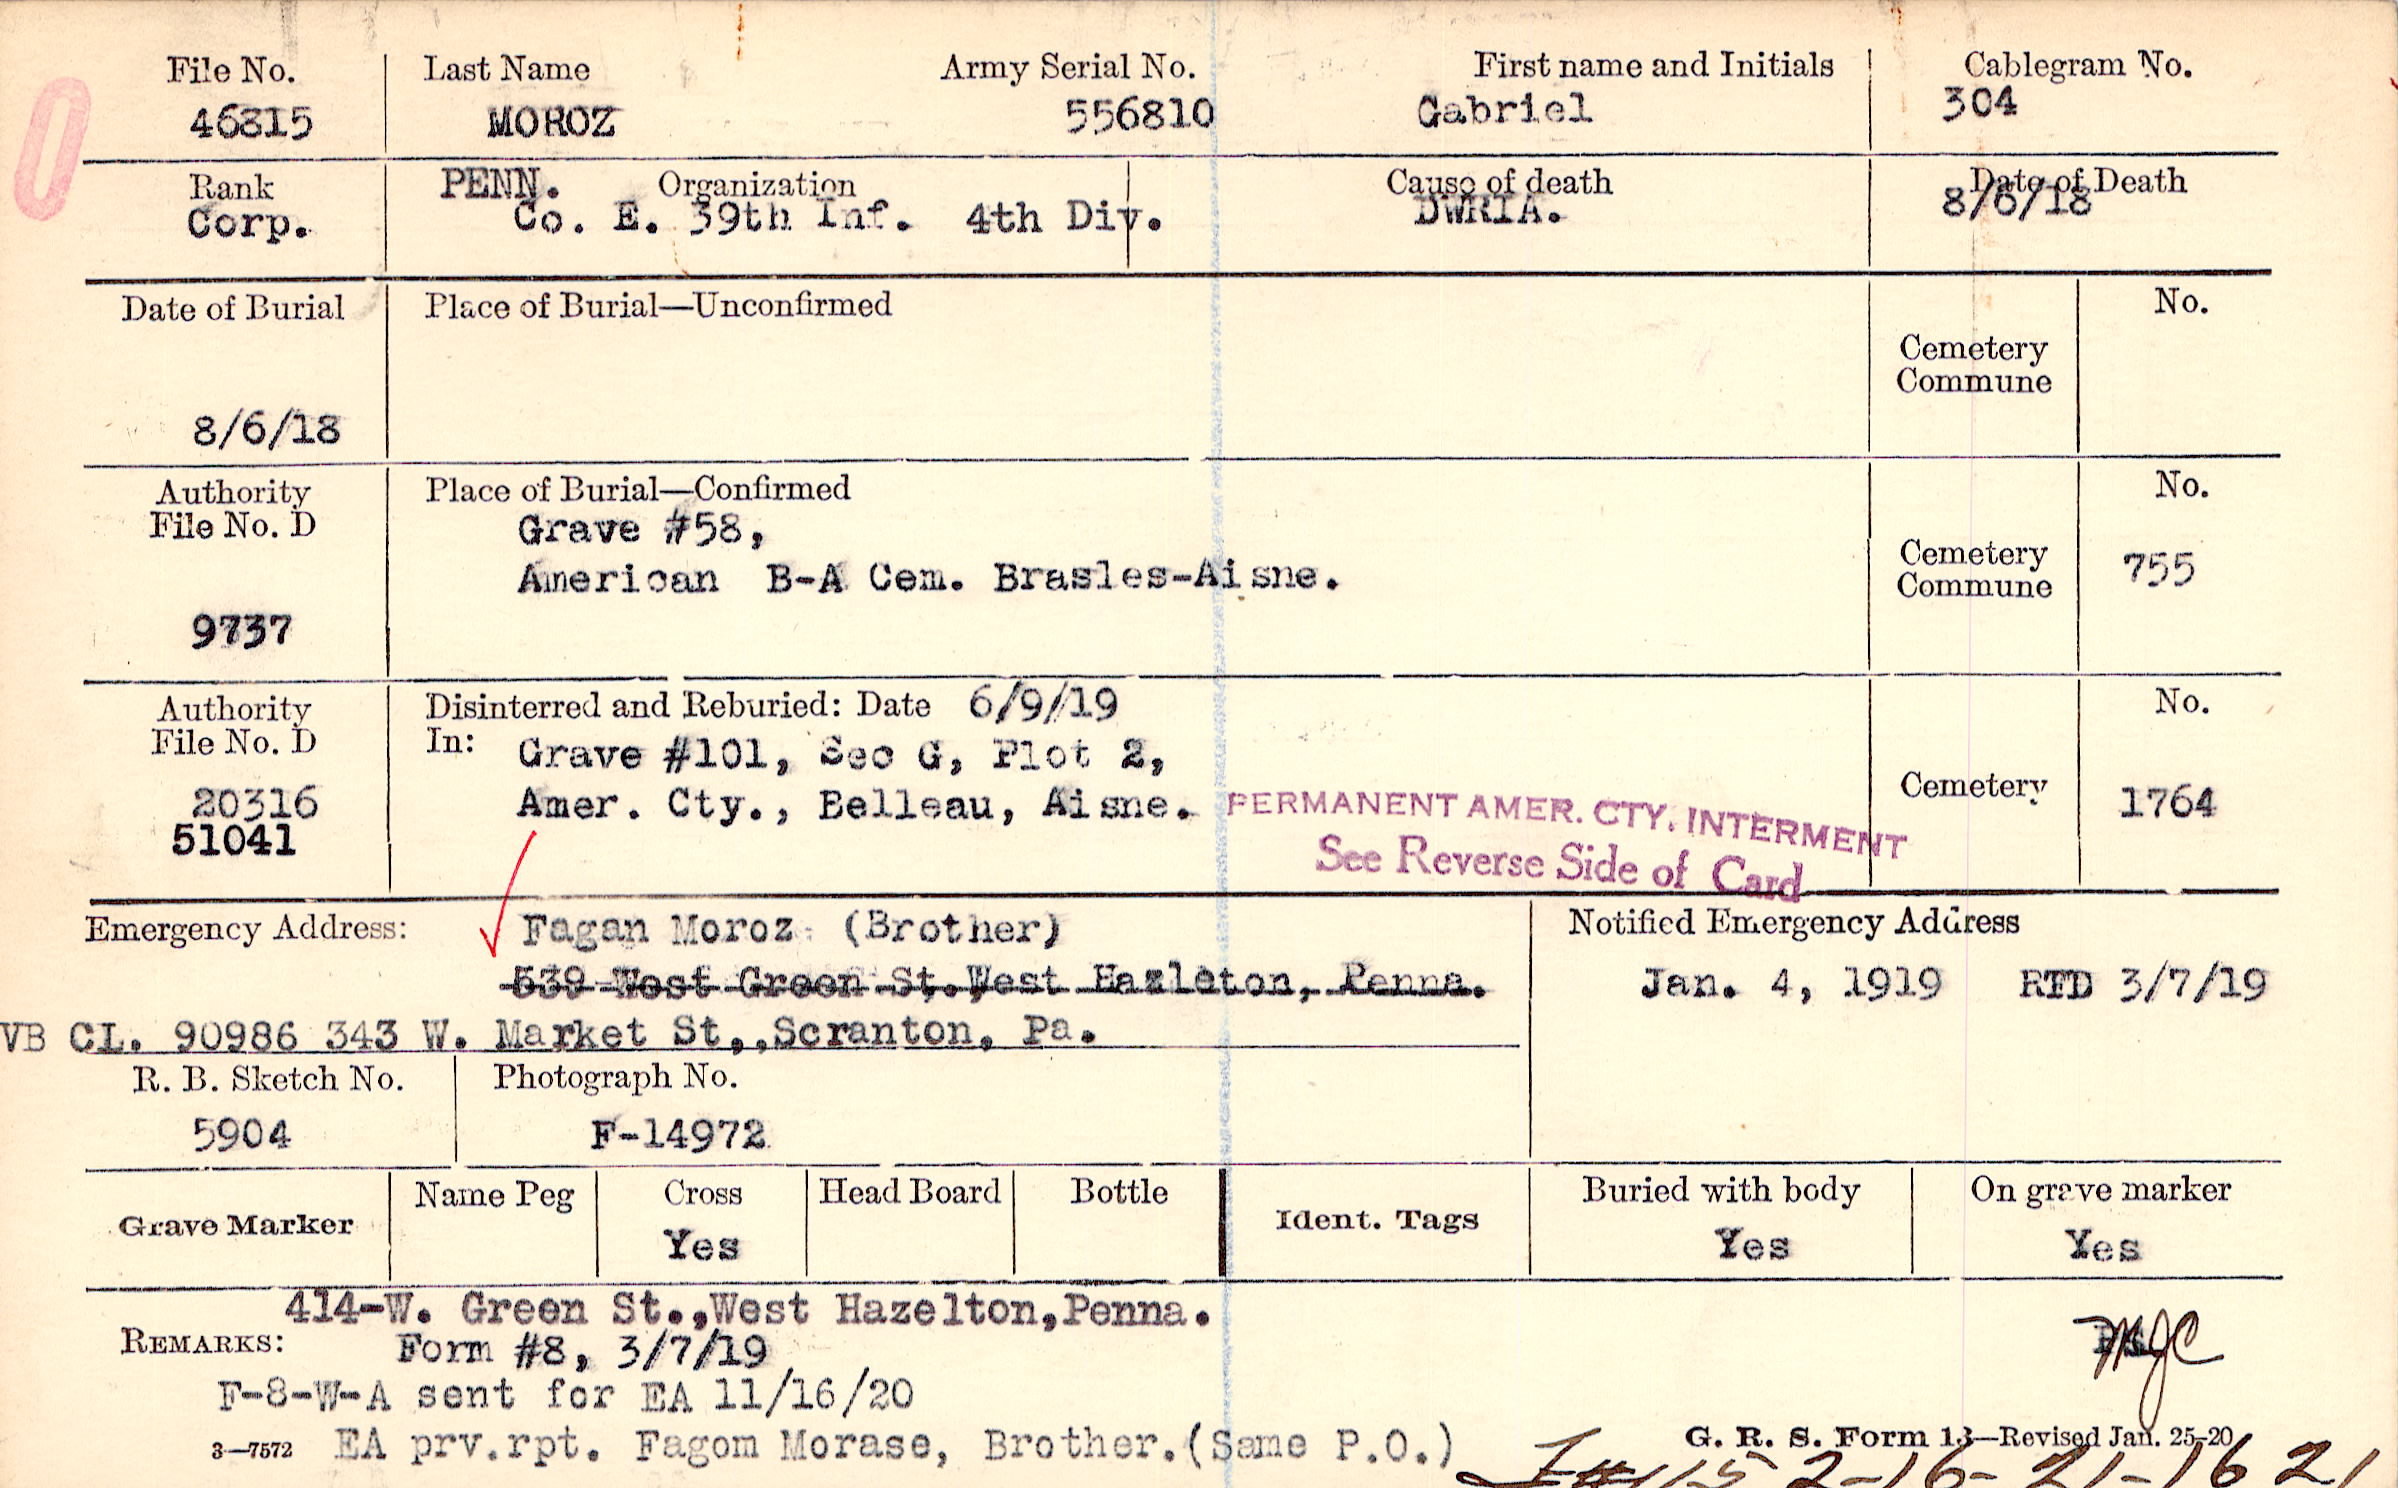 File No. Last Name Army Serial No. First name and Initials Cablegram No.
46315 MOROZ 556810 Gabriel 304
Rank PENN. Organization Cause of death Date of Death
Corp. Co. E. 39th Inf. 4th Div. DWRIA. 8/6/18
Date of Burial Place of Burial—Unconfirmed No.
Cemetery
Commune
8/6/18
Authority Place of Burial—Confirmed No.
File No. D Grave #58,
American B-A Cem. Brasles-Aisne. Cemetery
Commune 755
9737
Authority Disinterred and Reburied: Date 6/9/19 No.
File No. D In: Grave #101, Sec G, Plot 2,
20316 Amer. Cty., Belleau, Aisne. Cemetery 1764
51041
PERMANENT AMER. CTY. INTERMENT
See Reverse Side of Card
Emergency Address: Fagan Moroz (Brother) Notified Emergency Address
539 West Green St. West Hazleton, Penna. Jan. 4, 1919 RTD 3/7/19
VB CL. 90986 343 W. Market St,,Scranton, Pa.
R. B. Sketch No. Photograph No.
5904 F-14972
Grave Marker Name Peg Cross Head Board Bottle Ident. Tags Buried with body On grave marker
Yes Yes Yes
414-W. Green St.,West Hazelton,Penna.
REMARKS: Form #8, 3/7/19 MJC
F-8-W-A sent for EA 11/16/20
3—7572 EA prv.rpt. Fagom Morase, Brother.(Same P.O.) G. R. S. Form 13—Revised Jan. 25-20
2-16-21-1621